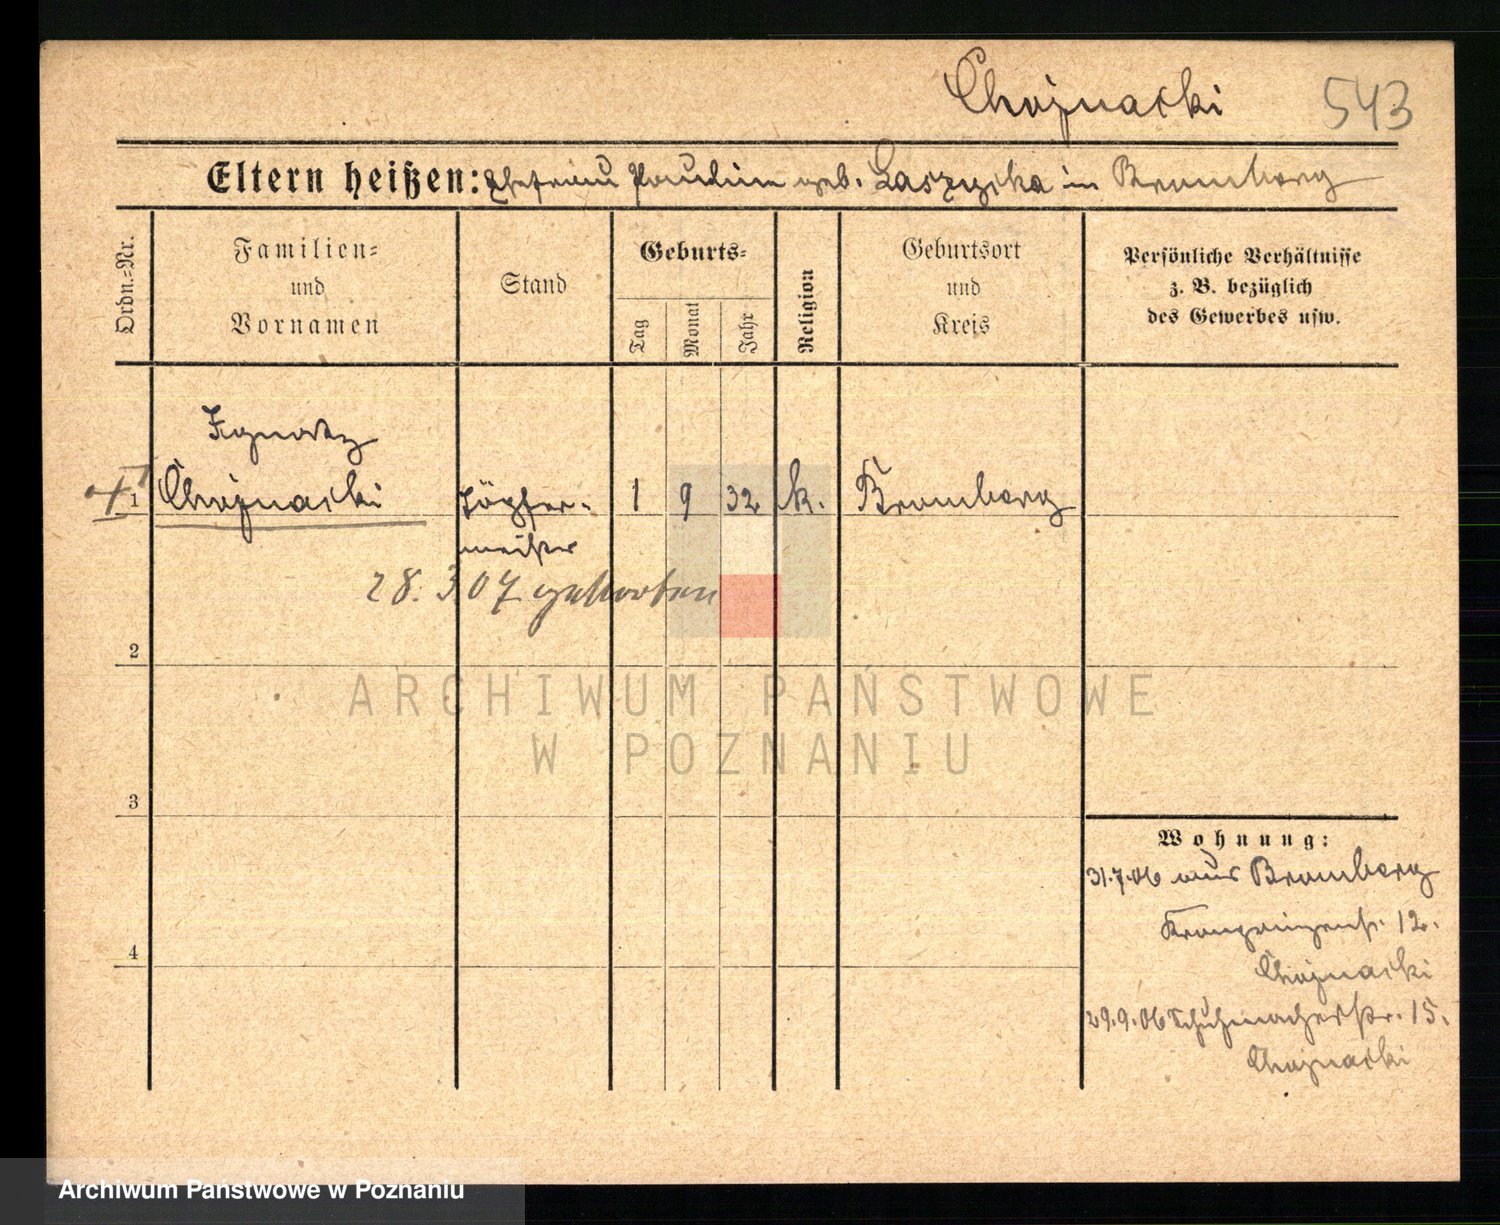 Chojnacki 543
Eltern heißen: Ehefrau Paulina geb. Laszycka in Bromberg
Ordn.=Nr.
Familien=
und
Vornamen
Stand
Geburts=
Tag
Monat
Jahr
Religion
Geburtsort
und
Kreis
Persönliche Verhältnisse
z. B. bezüglich
des Gewerbes usw.
Ignatz
1 Chojnacki Töpfer- 1 9 32 k. Bromberg
meister
28. 3 07 gestorben
2
ARCHIWUM PAŃSTWOWE
W POZNANIU
3
Wohnung:
31.7.06 aus Bromberg
Kronprinzenstr. 12.
4
Chojnacki
29.9.06 Schuhmacherstr. 15.
Chojnacki
Archiwum Państwowe w Poznaniu